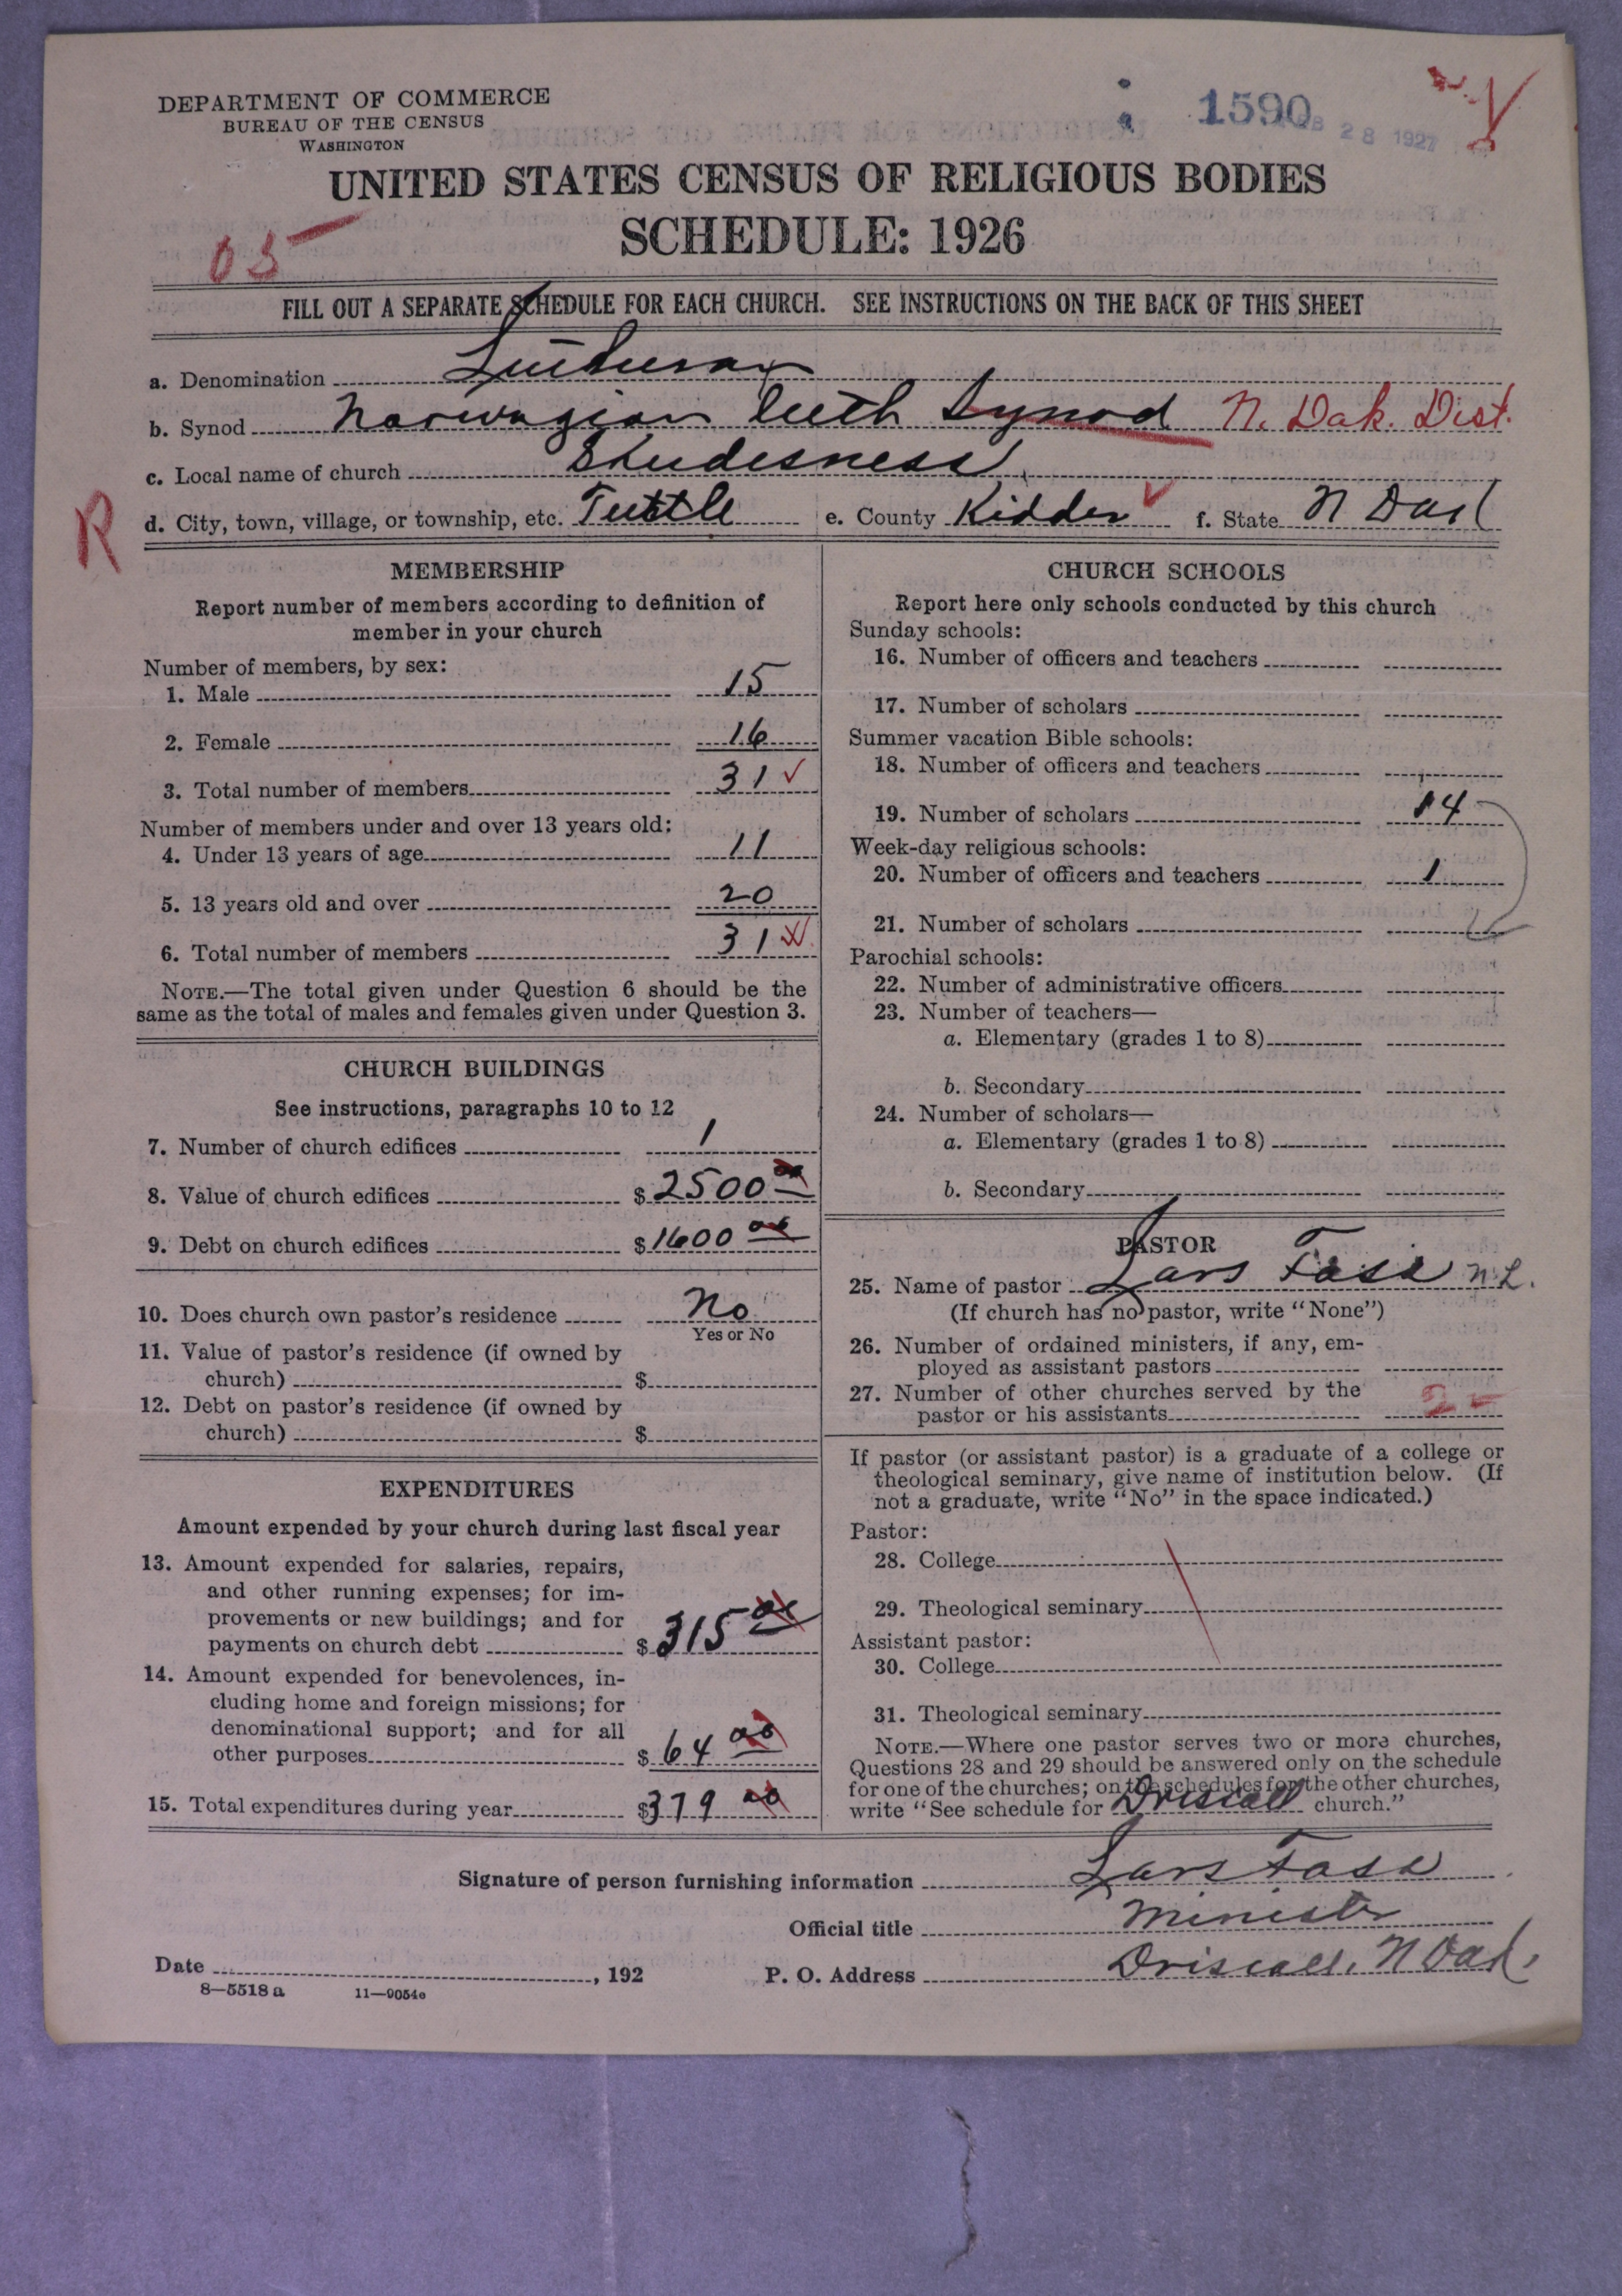 DEPARTMENT OF COMMERCE
BUREAU OF THE CENSUS
WASHINGTON
1590
28 1927
UNITED STATES CENSUS OF RELIGIOUS BODIES
SCHEDULE: 1926
05
FILL OUT A SEPARATE SCHEDULE FOR EACH CHURCH. SEE INSTRUCTIONS ON THE BACK OF THIS SHEET
a. Denomination Lutheran
b. Synod Norwegian Luth Synod N. Dak. Dist.
c. Local name of church Skudesness
R
d. City, town, village, or township, etc. Tuttle e. County Kidder f. State N Dak
MEMBERSHIP
Report number of members according to definition of
member in your church
Number of members, by sex:
1. Male 15
2. Female 16
3. Total number of members 31
Number of members under and over 13 years old:
4. Under 13 years of age 11
5. 13 years old and over 20
6. Total number of members 31
NOTE.—The total given under Question 6 should be the
same as the total of males and females given under Question 3.
CHURCH BUILDINGS
See instructions, paragraphs 10 to 12
7. Number of church edifices 1
8. Value of church edifices $2500 00
9. Debt on church edifices $1600 00
10. Does church own pastor's residence No
Yes or No
11. Value of pastor's residence (if owned by
church) $
12. Debt on pastor's residence (if owned by
church) $
EXPENDITURES
Amount expended by your church during last fiscal year
13. Amount expended for salaries, repairs,
and other running expenses; for im-
provements or new buildings; and for
payments on church debt $315 00
14. Amount expended for benevolences, in-
cluding home and foreign missions; for
denominational support; and for all
other purposes $64 00
15. Total expenditures during year $379 00
CHURCH SCHOOLS
Report here only schools conducted by this church
Sunday schools:
16. Number of officers and teachers
17. Number of scholars
Summer vacation Bible schools:
18. Number of officers and teachers
19. Number of scholars 14
Week-day religious schools:
20. Number of officers and teachers 1
21. Number of scholars
Parochial schools:
22. Number of administrative officers
23. Number of teachers—
a. Elementary (grades 1 to 8)
b. Secondary
24. Number of scholars—
a. Elementary (grades 1 to 8)
b. Secondary
PASTOR
25. Name of pastor Lars Fosse N.L.
(If church has no pastor, write "None")
26. Number of ordained ministers, if any, em-
ployed as assistant pastors
27. Number of other churches served by the
pastor or his assistants 2
If pastor (or assistant pastor) is a graduate of a college or
theological seminary, give name of institution below. (If
not a graduate, write "No" in the space indicated.)
Pastor:
28. College
29. Theological seminary
Assistant pastor:
30. College
31. Theological seminary
NOTE.—Where one pastor serves two or more churches,
Questions 28 and 29 should be answered only on the schedule
for one of the churches; on the schedules for the other churches,
write "See schedule for Driscoll church."
Signature of person furnishing information Lars
Official title Minister
Date , 192 P. O. Address Driscoll, N Dak.
8—5518 a 11—9054c